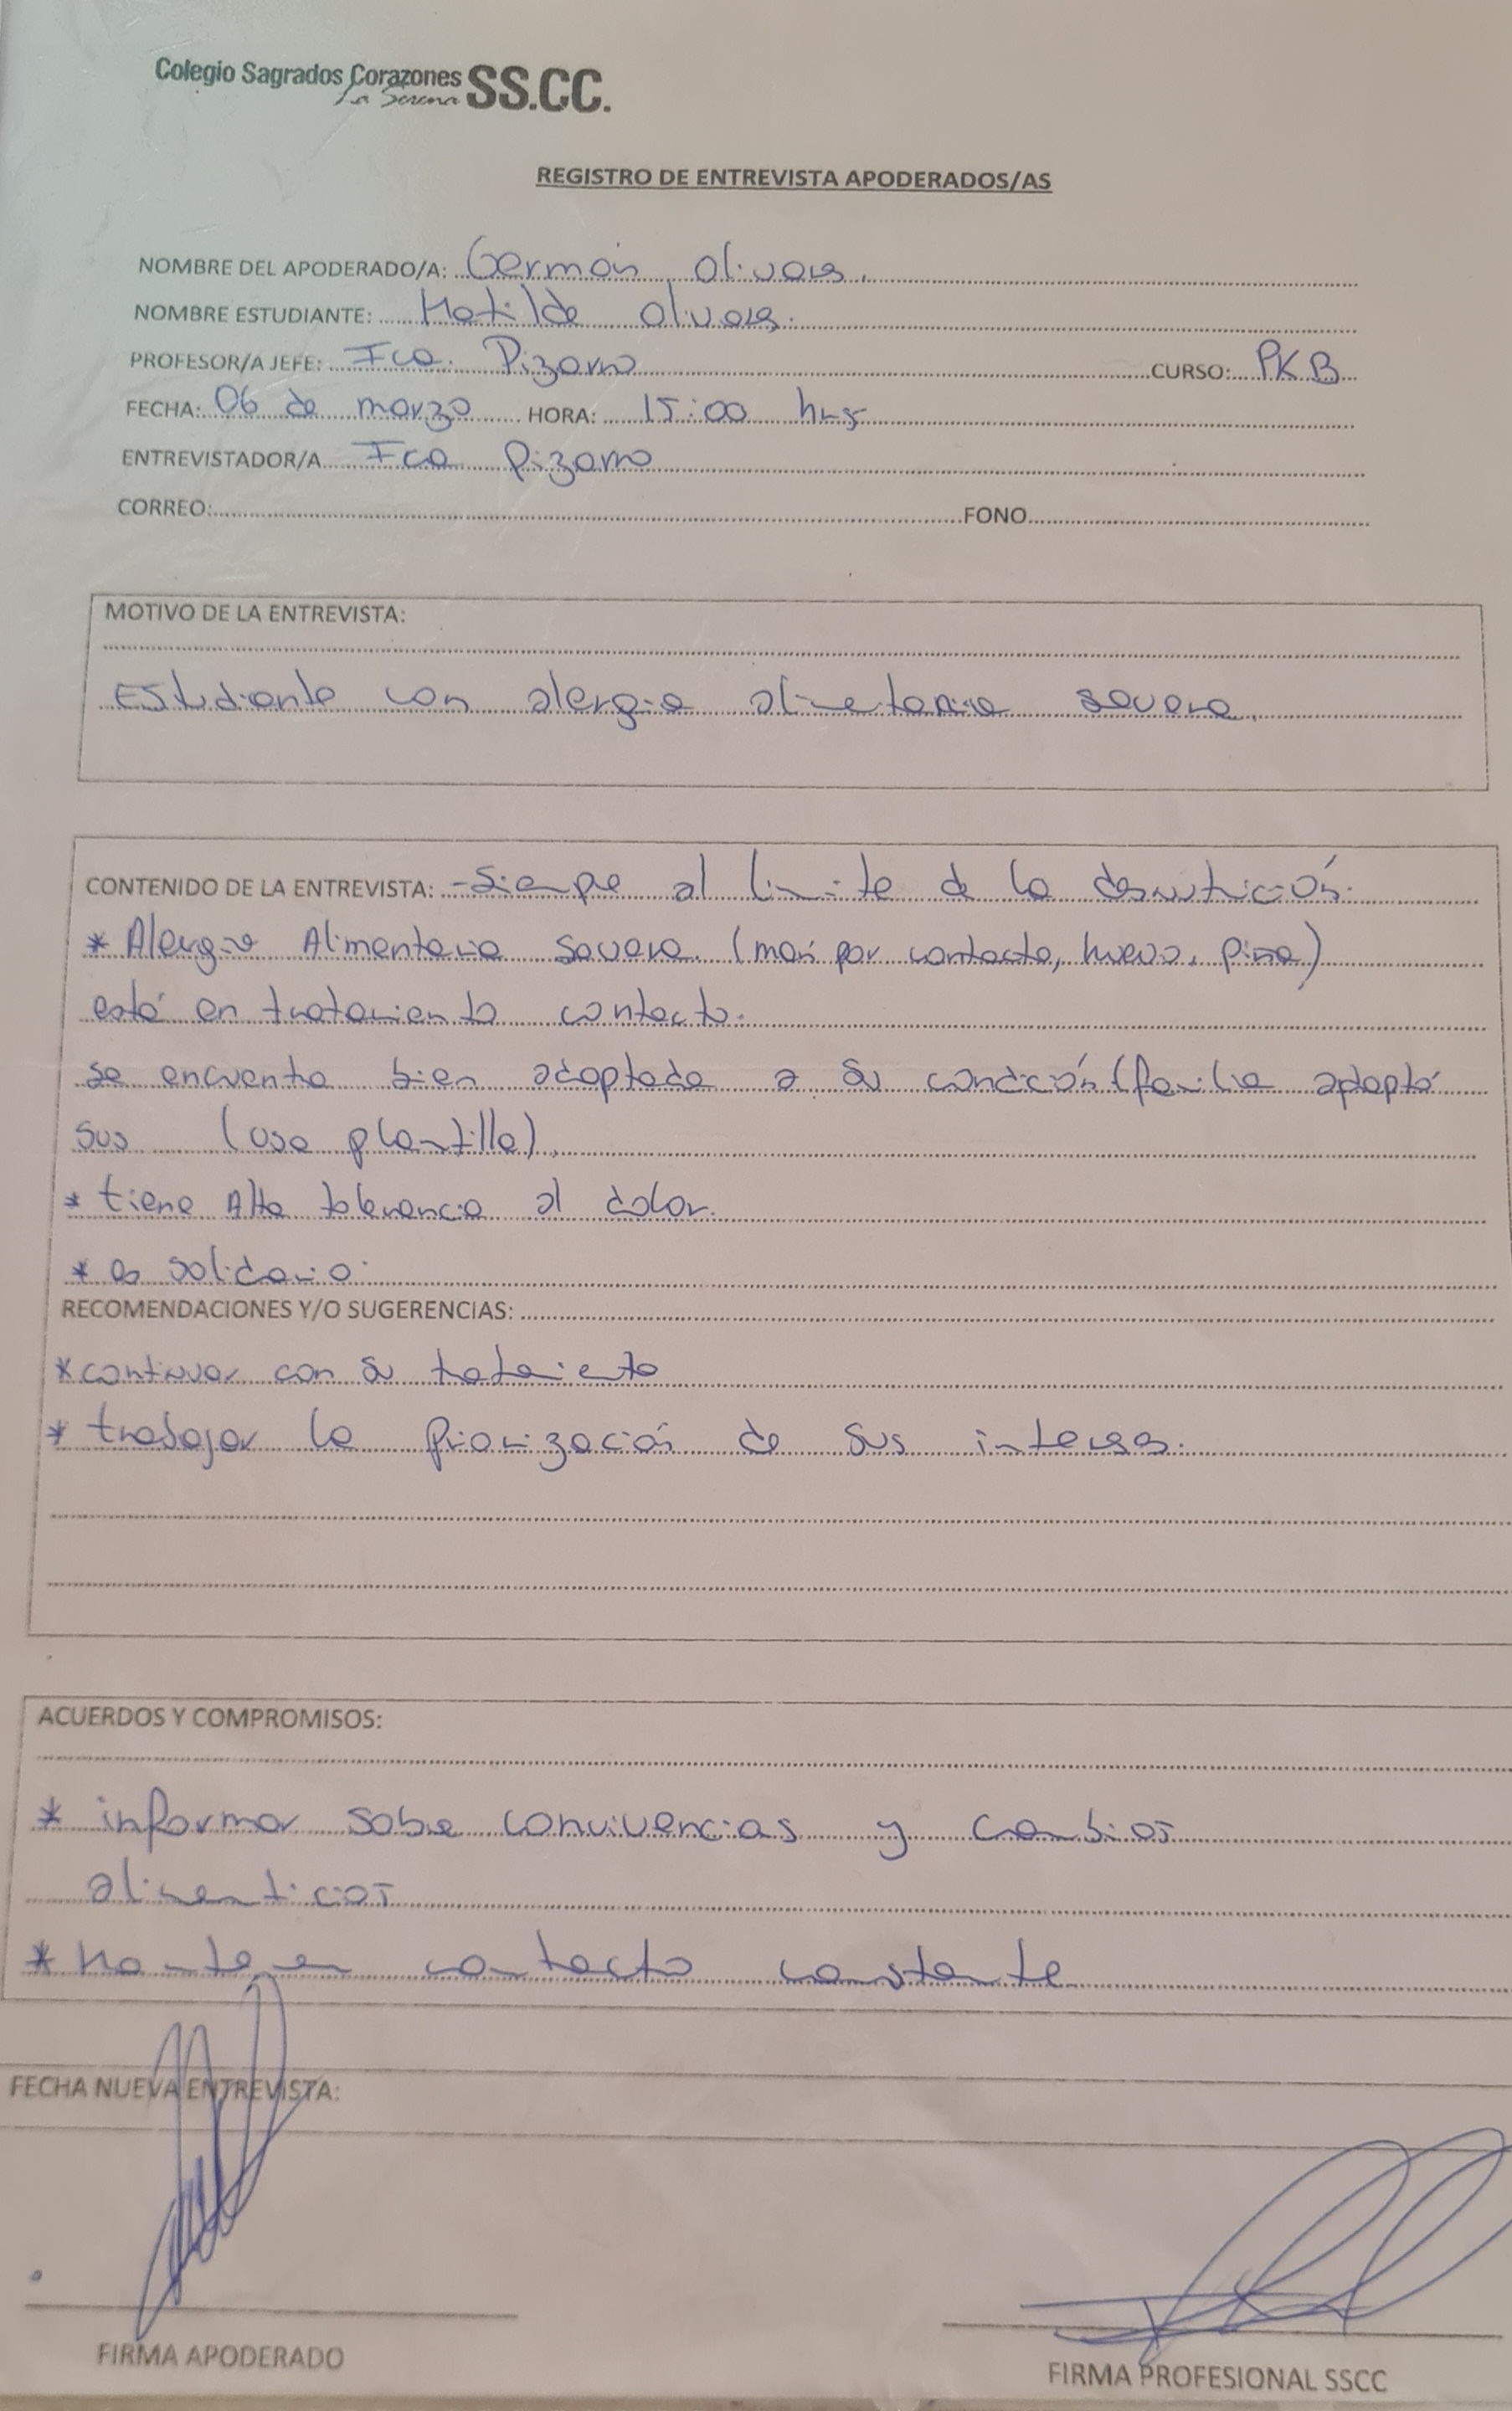 Colegio Sagrados Corazones SS.CC.
La Serena
REGISTRO DE ENTREVISTA APODERADOS/AS
NOMBRE DEL APODERADO/A: Germán Olivares.
NOMBRE ESTUDIANTE: Matilde Olivares.
PROFESOR/A JEFE: Fca. Pizarro CURSO: PKB
FECHA: 06 de marzo HORA: 15:00 hrs
ENTREVISTADOR/A Fca Pizarro
CORREO: FONO
MOTIVO DE LA ENTREVISTA:
Estudiante con alergia alimentaria severa.
CONTENIDO DE LA ENTREVISTA: - Siempre al limite de la desnutrición.
* Alergia Alimentaria severa. (maní por contacto, huevo, piña)
está en tratamiento contacto.
se encuentra bien adaptada a su condición (familia adaptó
sus (usa plantilla).
* tiene Alta tolerancia al dolor.
* es solidaria.
RECOMENDACIONES Y/O SUGERENCIAS:
* continuar con su tratamiento
* trabajar la priorización de sus intereses.
ACUERDOS Y COMPROMISOS:
* informar sobre convivencias y cambios
alimenticios
* Mantener contacto constante
FECHA NUEVA ENTREVISTA:
FIRMA APODERADO
FIRMA PROFESIONAL SSCC